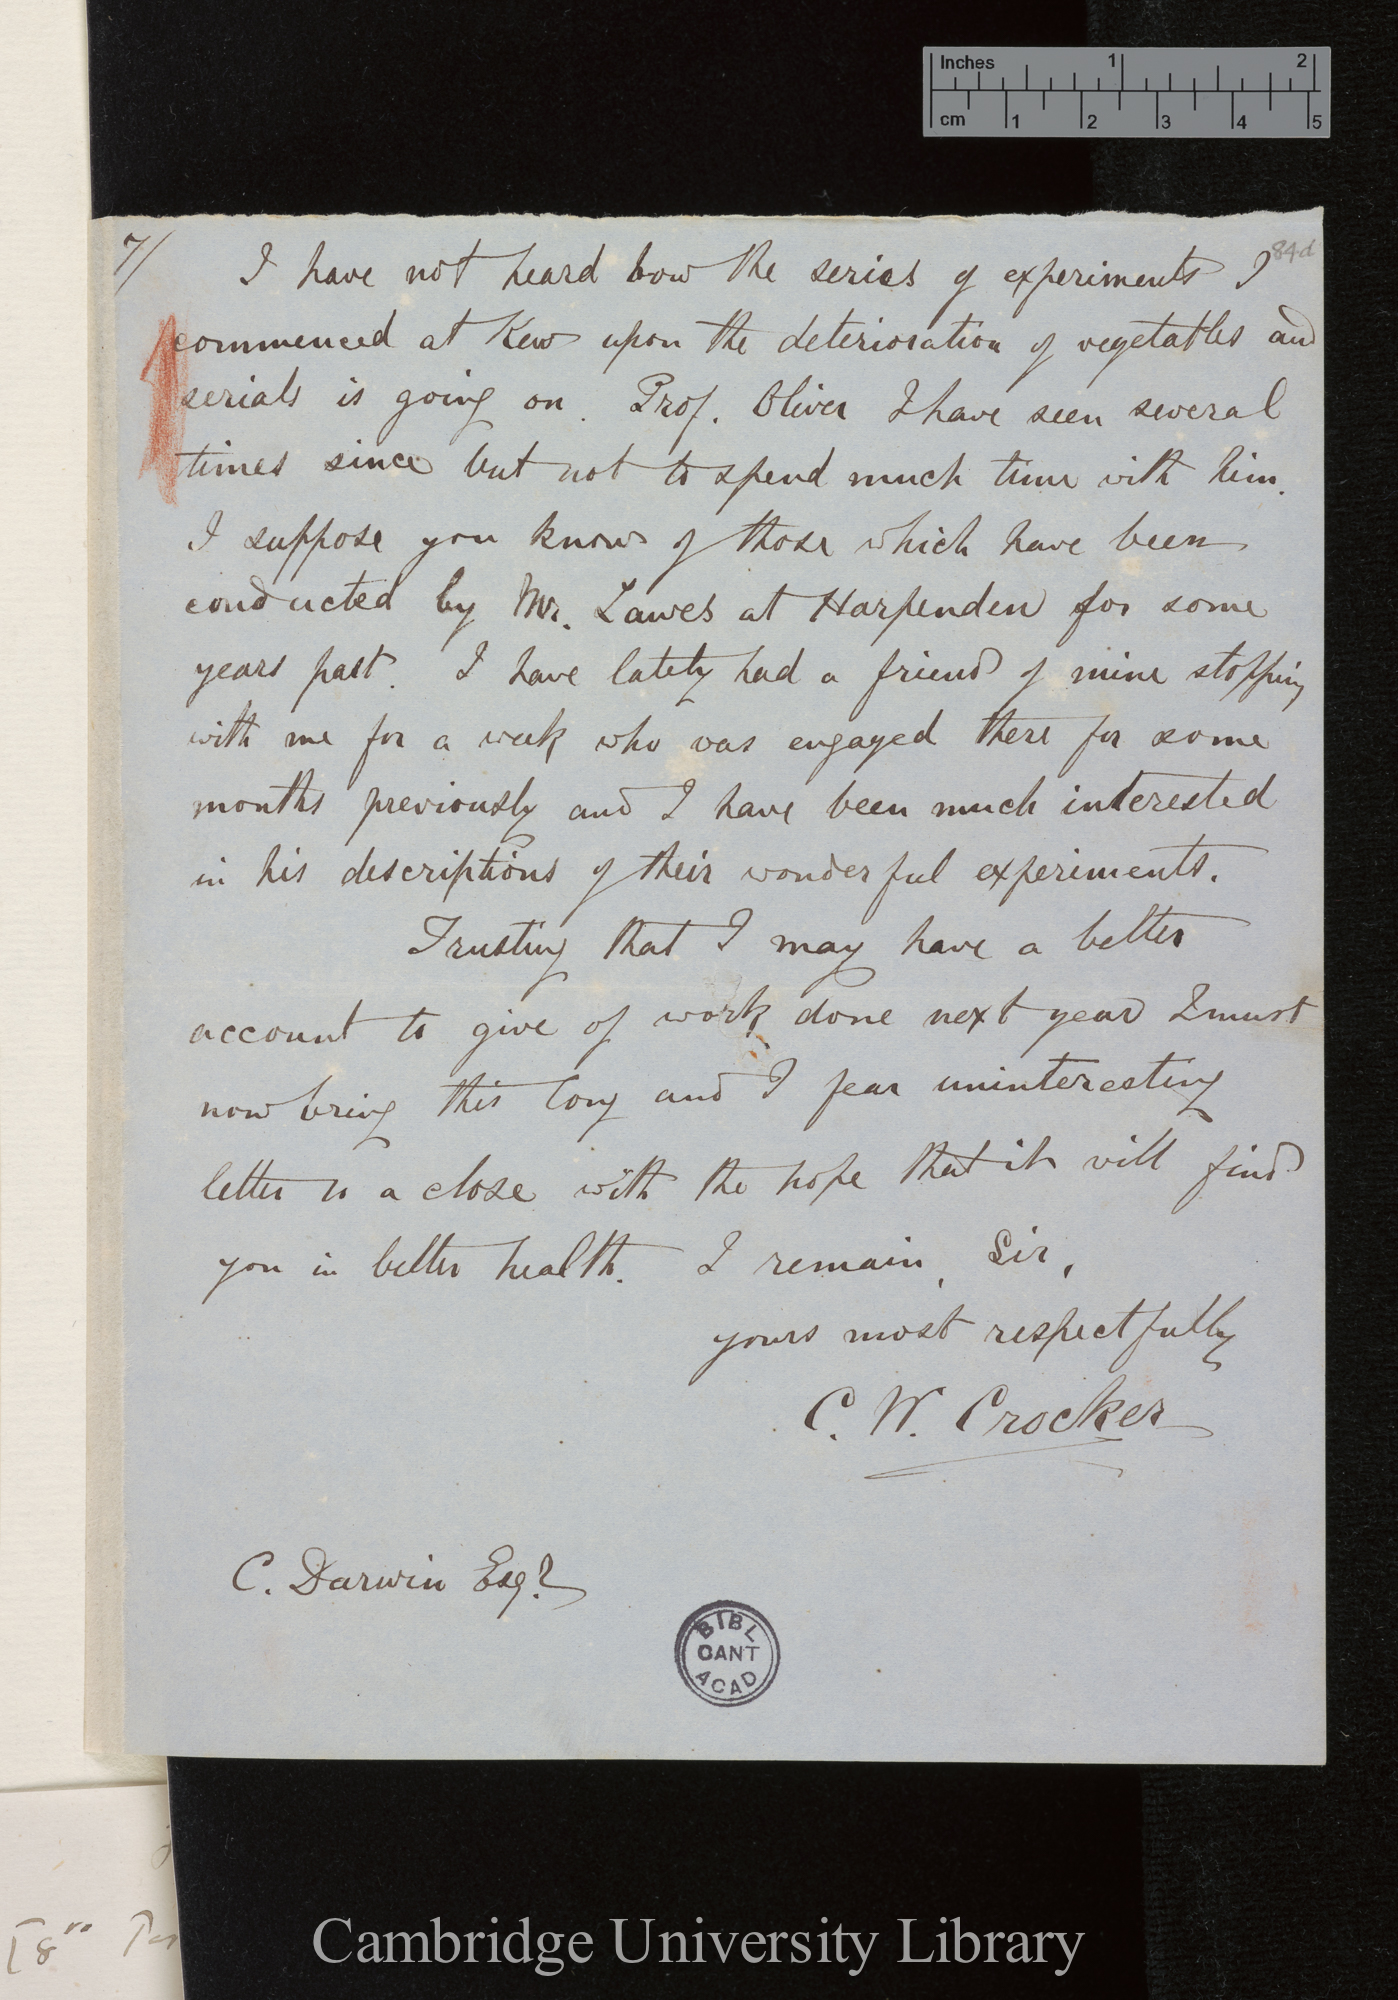 Inches 1 2
cm 1 2 3 4 5
7/
84d
I have not heard how the series of experiments I
commenced at Kew upon the deterioration of vegetables and
serials is going on. Prof. Oliver I have seen several
times since but not to spend much time with him.
I suppose you know of those which have been
conducted by Mr. Lawes at Harpenden for some
years past. I have lately had a friend of mine stopping
with me for a week who was engaged there for some
months previously and I have been much interested
in his descriptions of their wonderful experiments.
Trusting that I may have a better
account to give of work done next year I must
now bring this long and I fear uninteresting
letter to a close with the hope that it will find
you in better health. I remain, Sir,
yours most respectfully
C. W. Crocker
C. Darwin Esqr
BIBL
CANT
ACAD
Cambridge University Library